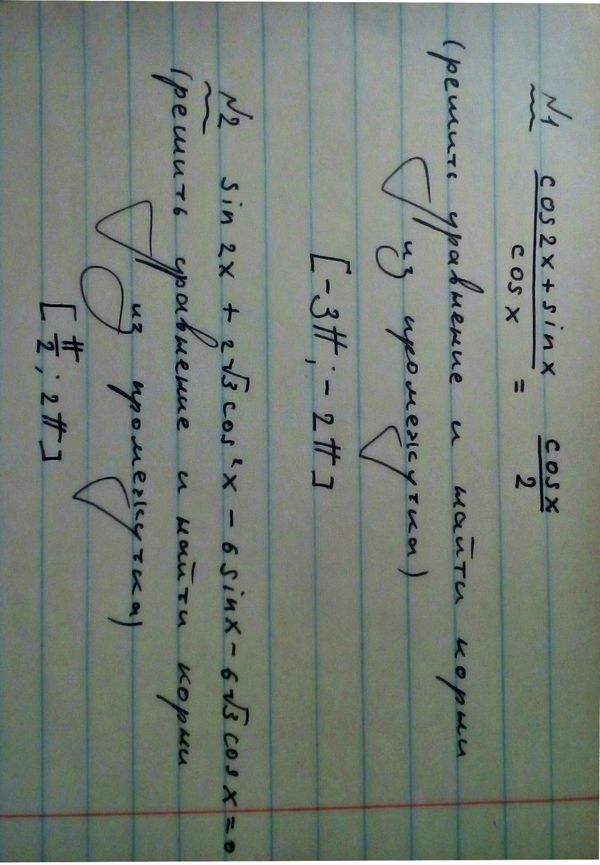 N1 (cos2x + sinx)/cosx = cosx/2
(решить уравнение и найти корни
из промежутка)
[-3π; -2π]
N2 sin 2x + 2√3 cos²x - 6 sinx - 6√3 cosx = 0
(решить уравнение и найти корни
из промежутка)
[π/2; 2π]